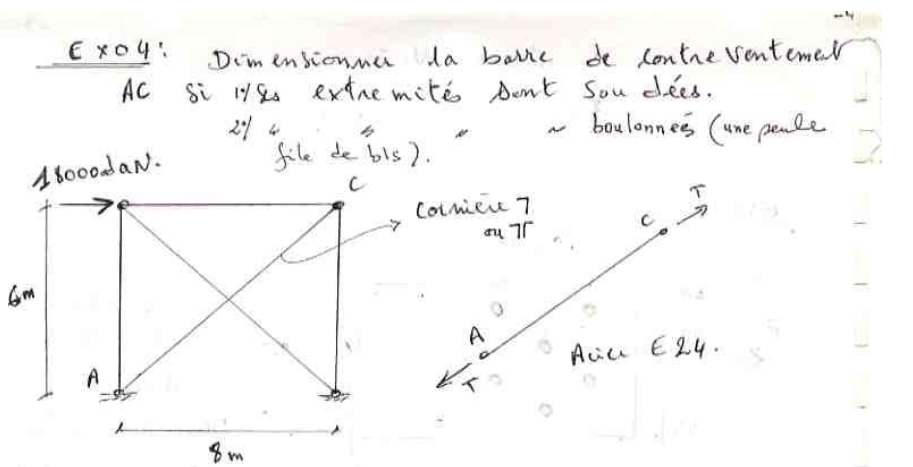 Exo 4: Dimensionner la barre de contreventement
AC si 1°/ les extremités sont soudées.
2°/ " " " " boulonnées (une seule
file de bls).
18000daN.
C
Cornière ┐
ou ╥
6m
A
8m
T
C
A
T
Acier E24.